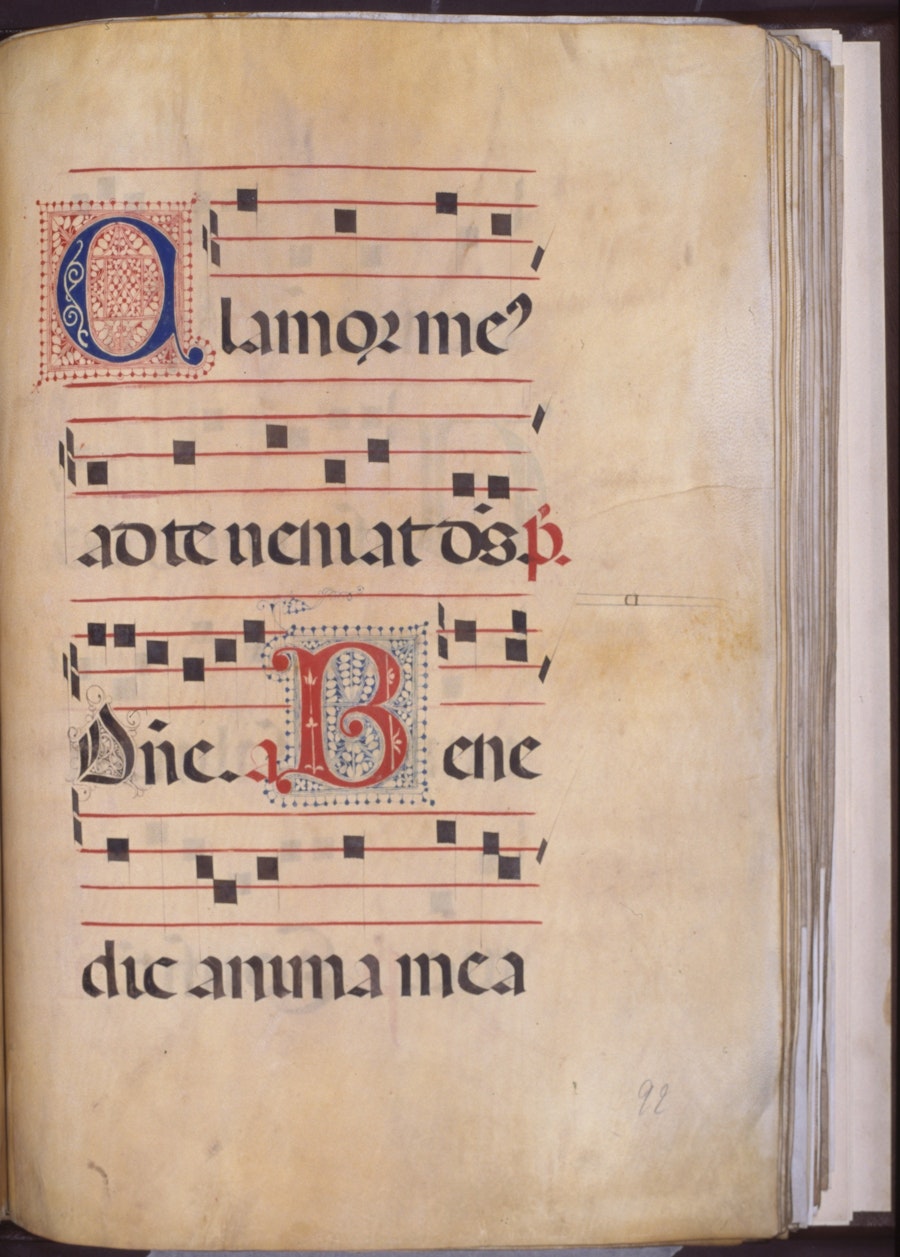 Clamor meꝰ
ad te veniat ds̄. p̄.
Dn̄e. a Bene
dic anima mea
92